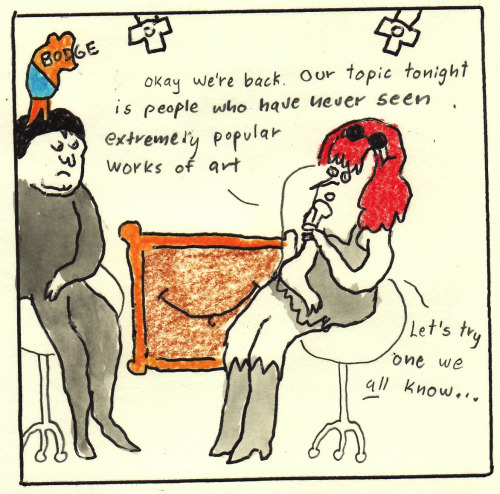 BODGE
okay we're back. Our topic tonight
is people who have never seen
extremely popular
works of art
Let's try
one we
all know...